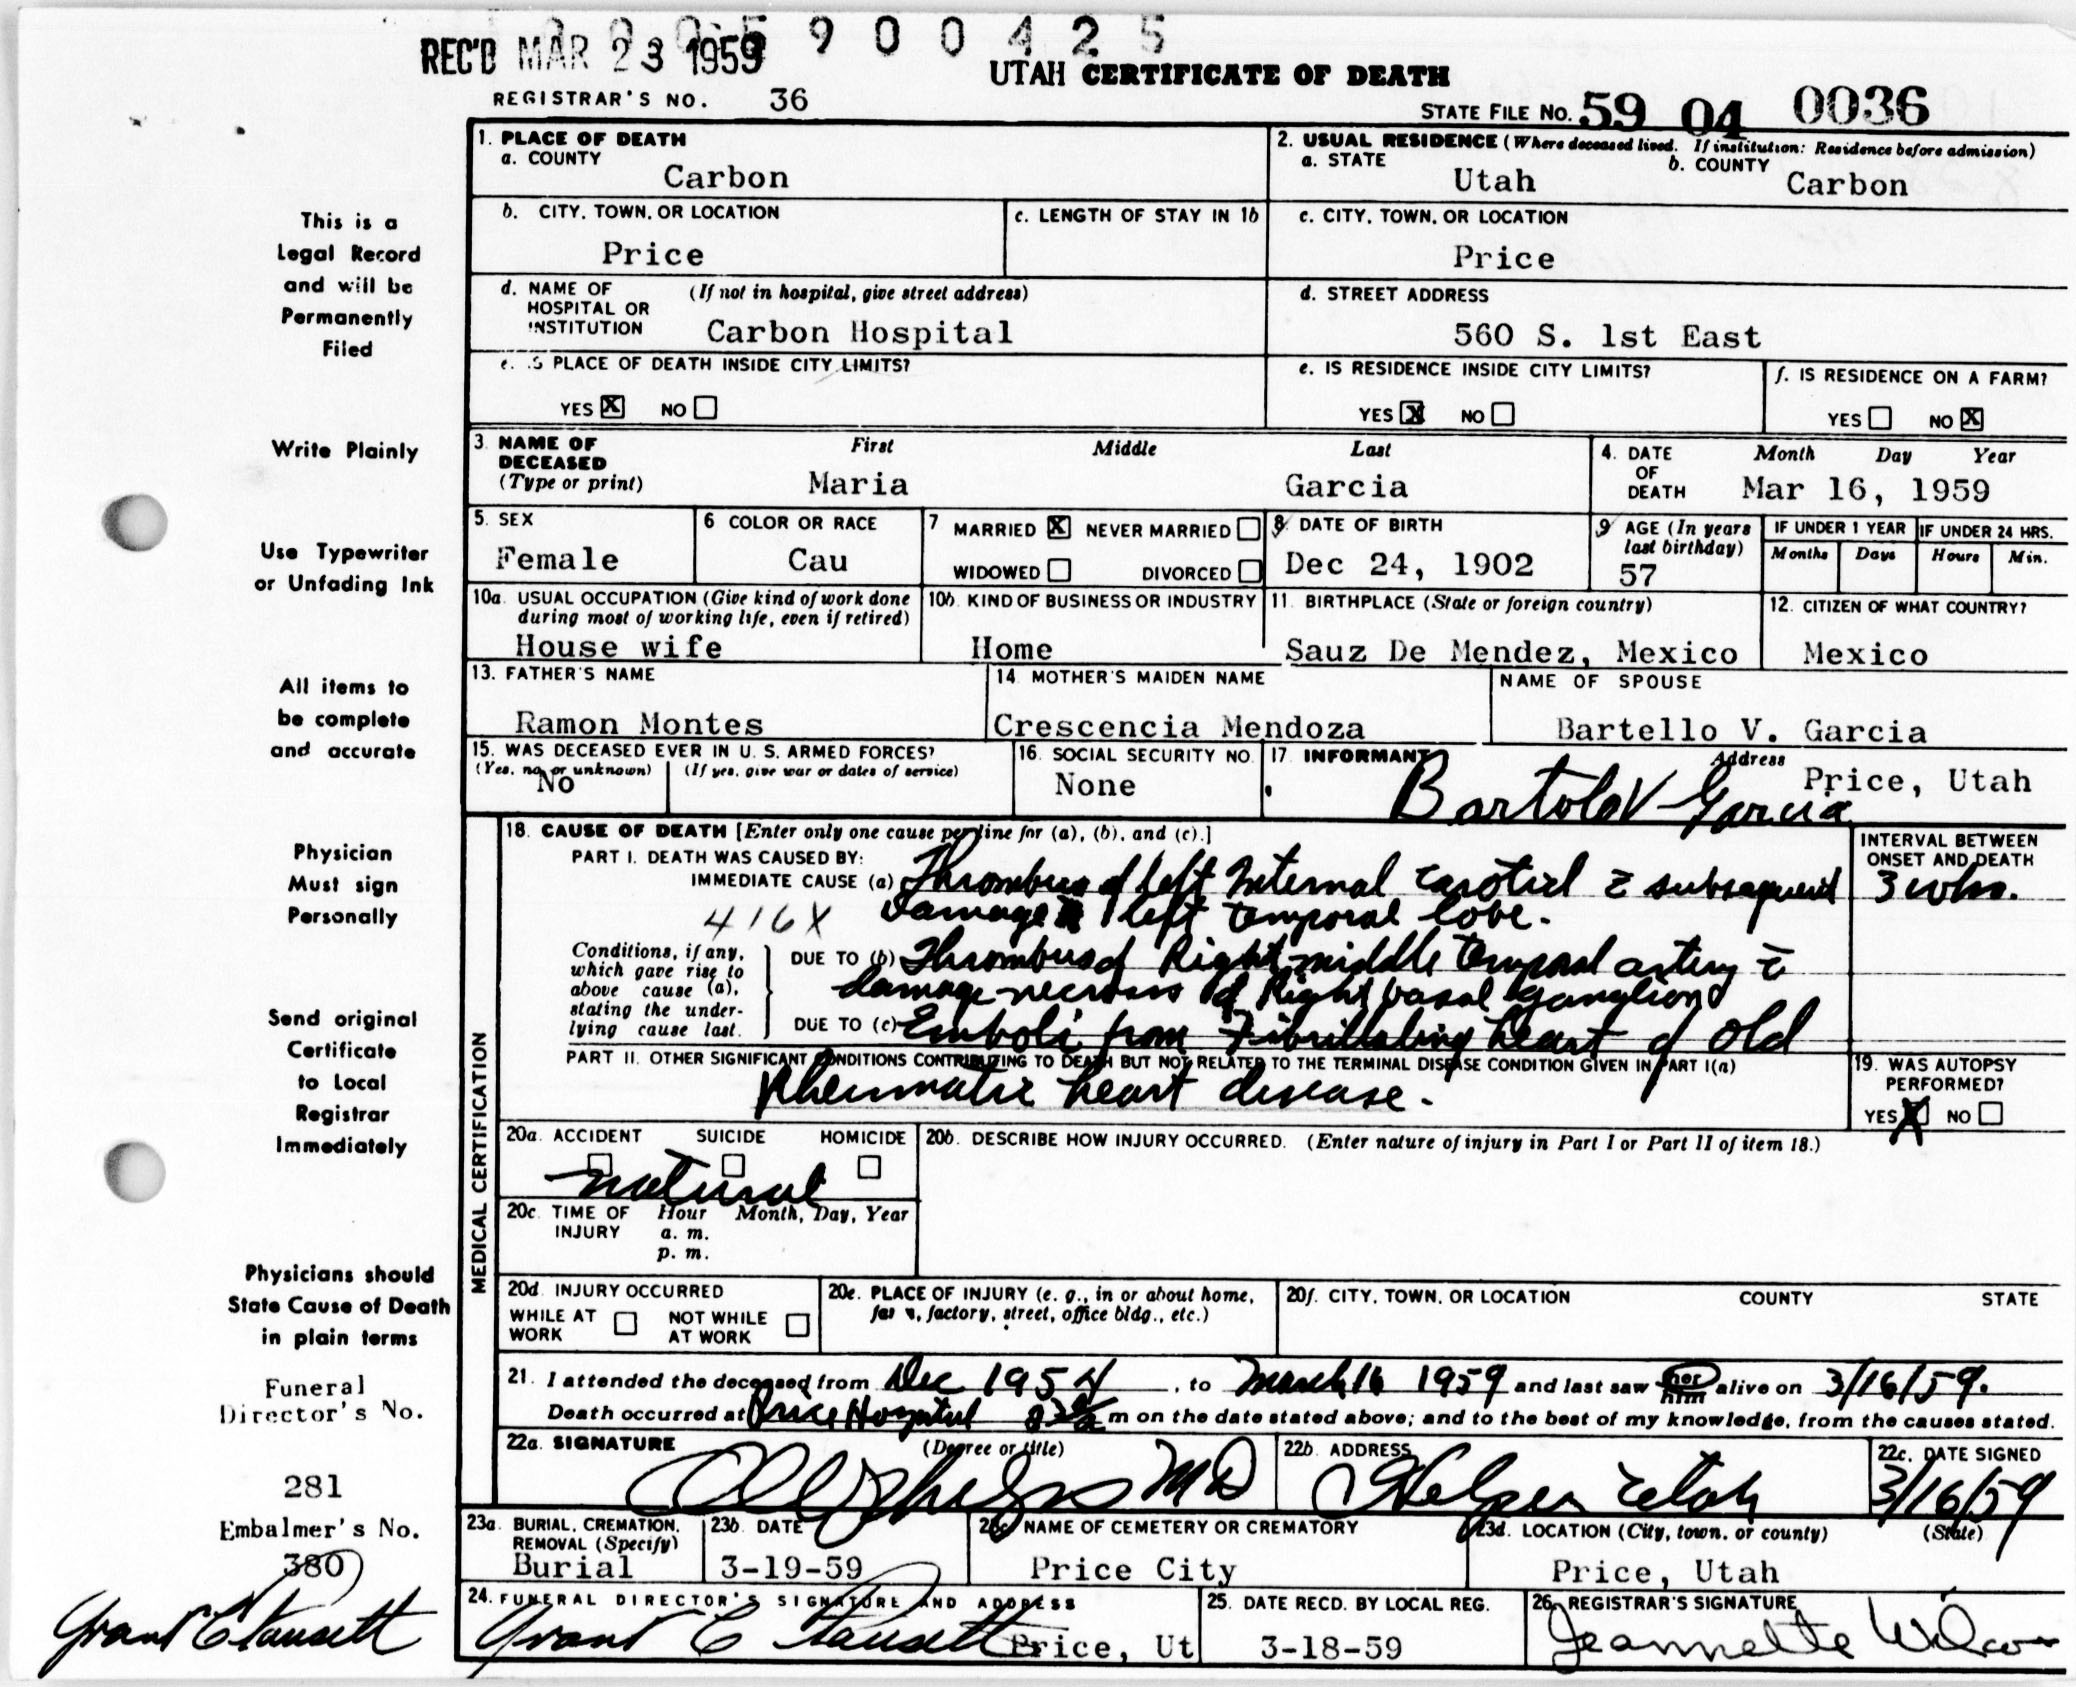 1 0 0 5 9 0 0 4 2 5
REC'D MAR 23 1959
UTAH CERTIFICATE OF DEATH
REGISTRAR'S NO. 36
STATE FILE NO. 59 04 0036
1. PLACE OF DEATH
a. COUNTY
Carbon
2. USUAL RESIDENCE (Where deceased lived. If institution: Residence before admission)
a. STATE
Utah
b. COUNTY
Carbon
b. CITY, TOWN, OR LOCATION
Price
c. LENGTH OF STAY IN 1b
c. CITY, TOWN, OR LOCATION
Price
d. NAME OF HOSPITAL OR INSTITUTION
(If not in hospital, give street address)
Carbon Hospital
d. STREET ADDRESS
560 S. 1st East
e. IS PLACE OF DEATH INSIDE CITY LIMITS?
YES X NO
e. IS RESIDENCE INSIDE CITY LIMITS?
YES X NO
f. IS RESIDENCE ON A FARM?
YES NO X
3. NAME OF DECEASED
(Type or print)
First Middle Last
Maria Garcia
4. DATE OF DEATH
Month Day Year
Mar 16, 1959
5. SEX
Female
6 COLOR OR RACE
Cau
7 MARRIED X NEVER MARRIED
WIDOWED DIVORCED
8 DATE OF BIRTH
Dec 24, 1902
9 AGE (In years last birthday)
57
IF UNDER 1 YEAR
Months Days
IF UNDER 24 HRS.
Hours Min.
10a. USUAL OCCUPATION (Give kind of work done during most of working life, even if retired)
House wife
10b. KIND OF BUSINESS OR INDUSTRY
Home
11. BIRTHPLACE (State or foreign country)
Sauz De Mendez, Mexico
12. CITIZEN OF WHAT COUNTRY?
Mexico
13. FATHER'S NAME
Ramon Montes
14. MOTHER'S MAIDEN NAME
Crescencia Mendoza
NAME OF SPOUSE
Bartello V. Garcia
15. WAS DECEASED EVER IN U. S. ARMED FORCES?
(Yes, no, or unknown) (If yes, give war or dates of service)
No
16. SOCIAL SECURITY NO.
None
17 INFORMANT
Bartolo V Garcia
Address
Price, Utah
18. CAUSE OF DEATH [Enter only one cause per line for (a), (b), and (c).]
PART I. DEATH WAS CAUSED BY:
IMMEDIATE CAUSE (a) Thrombus of left Internal carotid c̄ subsequent
416X damage left temporal lobe.
INTERVAL BETWEEN ONSET AND DEATH
3 wks.
Conditions, if any, which gave rise to above cause (a), stating the underlying cause last.
DUE TO (b) Thrombus of Right middle temporal artery c̄
damage necrosis of Right basal ganglion
DUE TO (c) Emboli from Fibrillating heart of old
PART II. OTHER SIGNIFICANT CONDITIONS CONTRIBUTING TO DEATH BUT NOT RELATED TO THE TERMINAL DISEASE CONDITION GIVEN IN PART I(a)
Rheumatic heart disease.
19. WAS AUTOPSY PERFORMED?
YES X NO
MEDICAL CERTIFICATION
20a. ACCIDENT SUICIDE HOMICIDE
natural
20b. DESCRIBE HOW INJURY OCCURRED. (Enter nature of injury in Part I or Part II of item 18.)
20c. TIME OF INJURY
Hour Month, Day, Year
a. m.
p. m.
20d. INJURY OCCURRED
WHILE AT WORK NOT WHILE AT WORK
20e. PLACE OF INJURY (e. g., in or about home, farm, factory, street, office bldg., etc.)
20f. CITY, TOWN, OR LOCATION COUNTY STATE
21. I attended the deceased from Dec 1954, to March 16 1959 and last saw her him alive on 3/16/59.
Death occurred at Price Hospital m on the date stated above; and to the best of my knowledge, from the causes stated.
22a. SIGNATURE (Degree or title)
MD
22b. ADDRESS
Helper Utah
22c. DATE SIGNED
3/16/59
23a. BURIAL, CREMATION, REMOVAL (Specify)
Burial
23b. DATE
3-19-59
23c. NAME OF CEMETERY OR CREMATORY
Price City
23d. LOCATION (City, town, or county) (State)
Price, Utah
24. FUNERAL DIRECTOR'S SIGNATURE AND ADDRESS
Grant C Fausett Price, Ut
25. DATE RECD. BY LOCAL REG.
3-18-59
26. REGISTRAR'S SIGNATURE
Jeannette Wilcox
This is a
Legal Record
and will be
Permanently
Filed
Write Plainly
Use Typewriter
or Unfading Ink
All items to
be complete
and accurate
Physician
Must sign
Personally
Send original
Certificate
to Local
Registrar
Immediately
Physicians should
State Cause of Death
in plain terms
Funeral
Director's No.
281
Embalmer's No.
380
Grant C Fausett